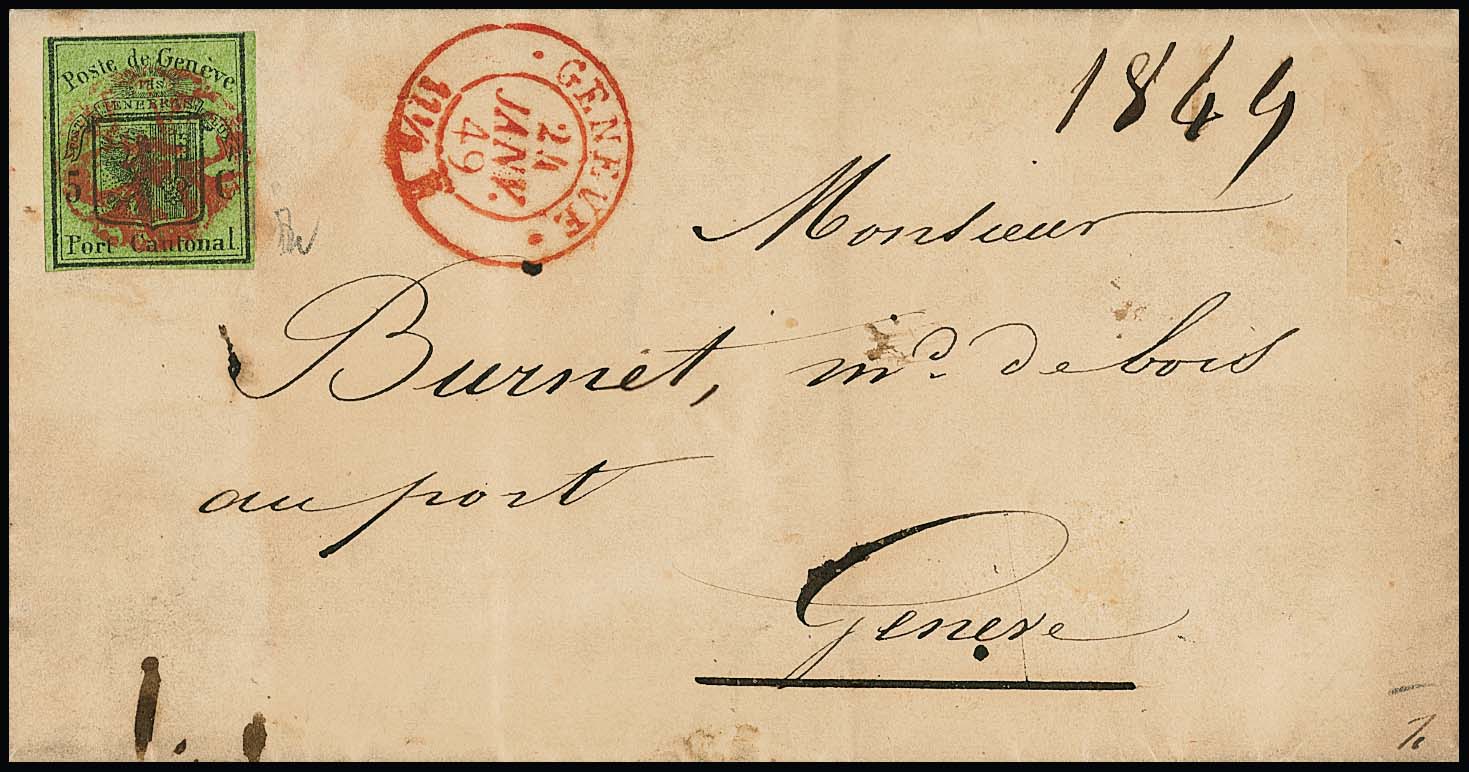 Poste de Genève
5 C
Port Cantonal.
GENEVE
24
JANV.
49
11½
1849
Monsieur
Burnet, md. de bois
au port
Geneve